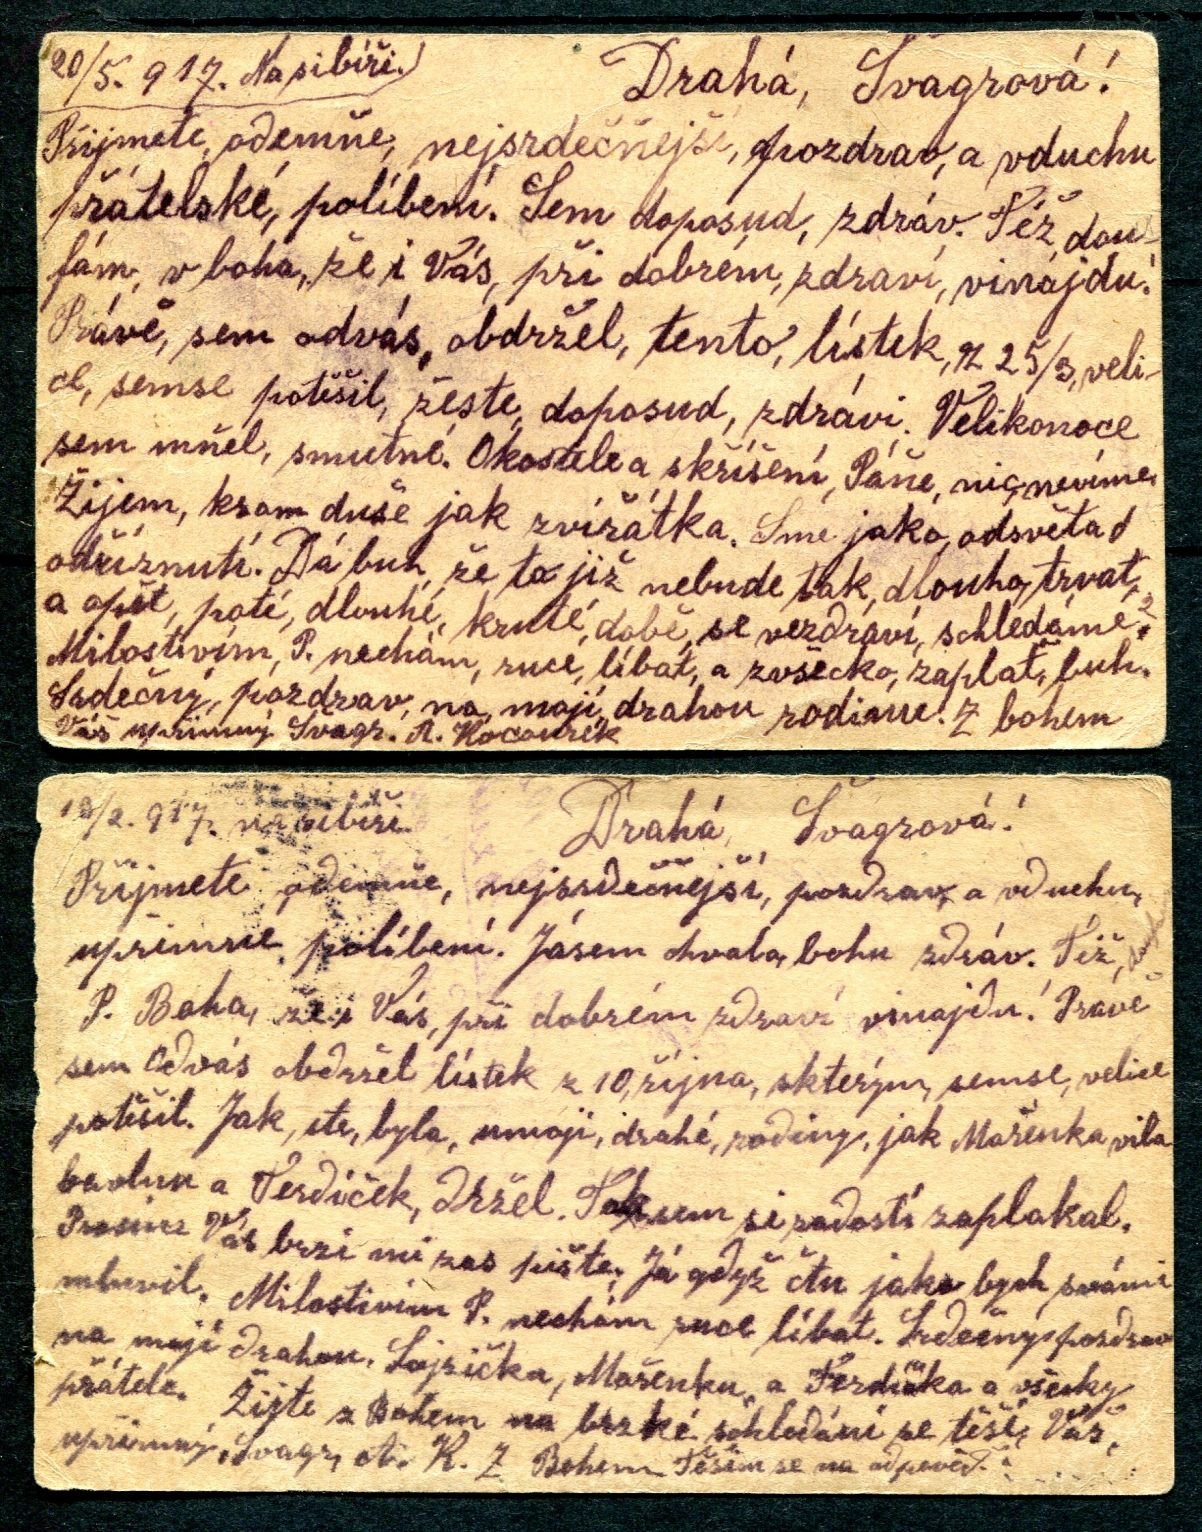 20/5. 917. Na sibíři.
Drahá, Švagrová!
Přijmete, odemňe, nejsrdečňejší, pozdrav, a vduchu
přátelské, políbení. Sem doposud, zdráv. Též dou-
fám, v boha, že i Vás, při dobrém, zdraví, vinajdu!
Právě, sem odvás, obdržel, tento, lístek, z 25/3, veli-
ce, semse potěšil, žeste, doposud, zdrávi. Velikonoce
sem mňel, smutné. Okostele a skříšení, Páňe, nic, nevíme,
Žijem, krom duše jak zvířátka. Sme jako, odsvěta d
odříznutí. Dá buh, že to již nebude tak, dlouho, trvat,
a opět, poté, dlouhé, kruté, době, se vezdraví, schledáme?
Milostivím, P. nechám, ruce, líbat, a zvšecko, zaplať, buh.
Srdečný, pozdrav, na, mojí, drahou rodinu. Z bohem
Váš upřimný Švagr. A. Kocourek
19/2. 917. na sibíři.
Drahá, Švagrová!
Přijmete odemňe, nejsrdečnější, pozdrav, a vduchu,
upřimné políbení. Jásem chvala, bohu zdráv. Též,
P. Boha, že i Vás, při dobrém zdraví vinajdu! Právě
sem Odvás obdržel lístek z 10, října, skterým, semse, velice
potěšil. Jak, ste, byla, umojí, drahé, rodiny, jak Mařenka vila
a Ferdíček, držel. Tak sem si radostí zaplakal.
Vás brzi mi zas pište, Já gdyž čtu jako bych svámi
mluvil. Milostivím P. nechám ruce líbat. Srdečný pozdrav
na mojí drahou, Lojzička, Mařenku, a Ferdíčka a všecky
přátele. Žijte z Bohem na brzké schledání se těší, Váš,
upřimný, Švagr, A. K. Z Bohem Těším se na odpověď.